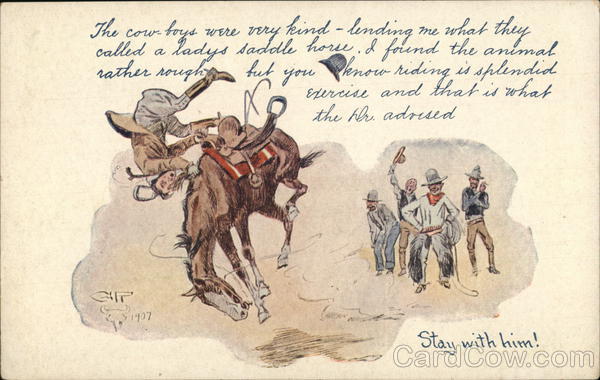 The cow-boys were very kind - lending me what they
called a ladys saddle horse. I found the animal
rather rough but you know riding is splendid
exercise and that is what
the Dr. advised
1907
Stay with him!
CardCow.com